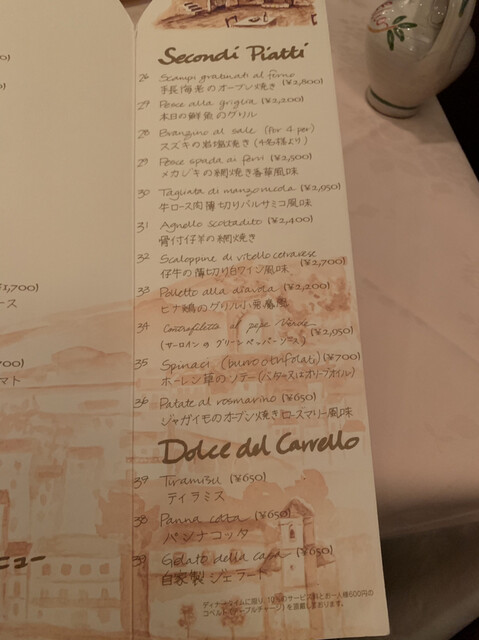 Secondi Piatti
26 Scampi gratinati al forno (¥2,800)
手長海老のオーブン焼き
27 Pesce alla griglia (¥2,200)
本日の鮮魚のグリル
28 Branzino al sale (for 4 per)
スズキの岩塩焼き (4名様より)
29 Pesce spada ai ferri (¥2,500)
メカジキの網焼き香草風味
30 Tagliata di manzo rucola (¥2,950)
牛ロース肉薄切りバルサミコ風味
31 Agnello scottadito (¥2,400)
骨付仔羊の網焼き
32 Scaloppine di vitello cetrarese (¥2,700)
仔牛の薄切り白ワイン風味
33 Polletto alla diavola (¥2,200)
ヒナ鶏のグリル小悪魔風
34 Contrafiletto al pepe Verde (¥2,950)
(サーロインのグリーンペッパーソース)
35 Spinaci (burro o trifolati) (¥700)
ホーレン草のソテー (バタ又はオリーブオイル)
36 Patate al rosmarino (¥650)
ジャガイモのオーブン焼きローズマリー風味
Dolce del Carrello
37 Tiramisu (¥650)
ティラミス
38 Panna cotta (¥650)
パンナコッタ
39 Gelato della casa (¥650)
自家製ジェラート
ディナータイムに限り、10%のサービス料とお一人様600円の
コペルト(テーブルチャージ)を頂戴しております。
¥1,700)
ース
00)
マト
ニュー